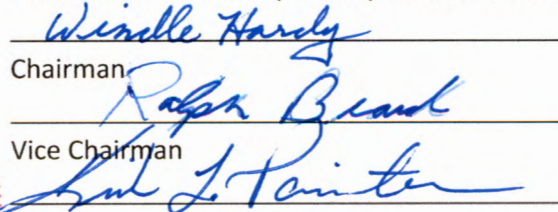 Windle Hardy
Chairman
Ralph Beard
Vice Chairman
L. Painter